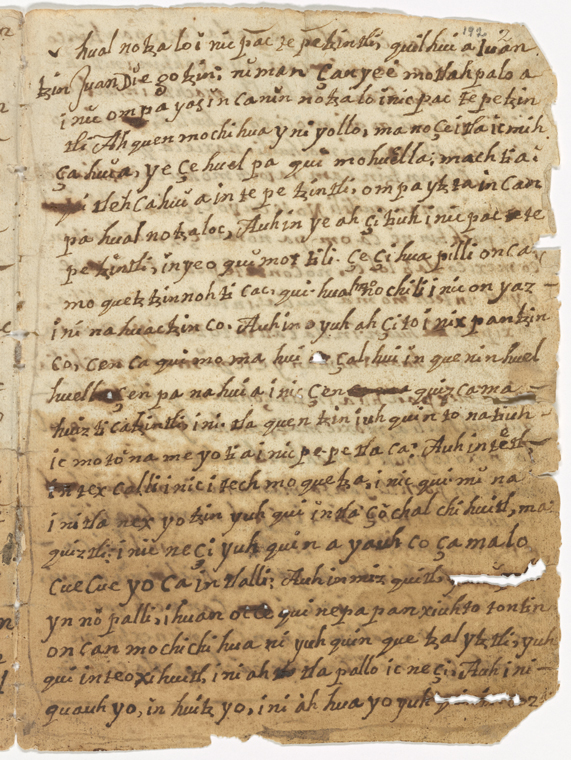 192 2
hual notza lo i nic pac te petzintli, quilhui a Juan
tzin Juan Diegotzin; niman Ca yee motlahpalo a
inic ompa yaz in canin notzalo inic pac te petzin
tli Ah quen mochihua yni yollo, ma noçe itla ic mih
ça huia, ye çe huel pa qui mohuella; mach tia i
tlehCahui a in te pe tzintli, ompa ytz ta in Can
pa hual notzaloc, Auh in ye ah çi tiuh inic pac te te
pe tzintli, in ye o qui mottili. Çe çi hua pilli on ca
mo quetztzinnohti cac, qui hual mo nochili inic on yaz
i ni nahuactzin co. Auh in o yuh ah çi to i nix pantzin
co, cen ca qui mo ma hui çal hui in quenin huel
huella Çen pa na hui a inic Çen quizcama
huizti catzintli, ini tla quen tzin iuh quin to natiuh
ic mo to na me yo tia inic pe petla ca; Auh in tetl,
tex calli inic itech mo quetza, inic qui mi na
i ni tla nex yo tzin yuh qui in tla Ço chal chi huitl, ma
quiztli; inic ne çi yuh qui n a yauh co ça ma lo
cue Cue yo Ca in tlalli; Auh in miz quitl,
yn no palli, ihuan occe qui nepa pan xiuhto tontin
on can mochichi hua ni yuh quin que tzal ytztli, yuh
qui in teo xi huitl, ini ah tla pallo ic ne çi; Auh ini
quauh yo, in huitz yo, ini ah hua yo yuh